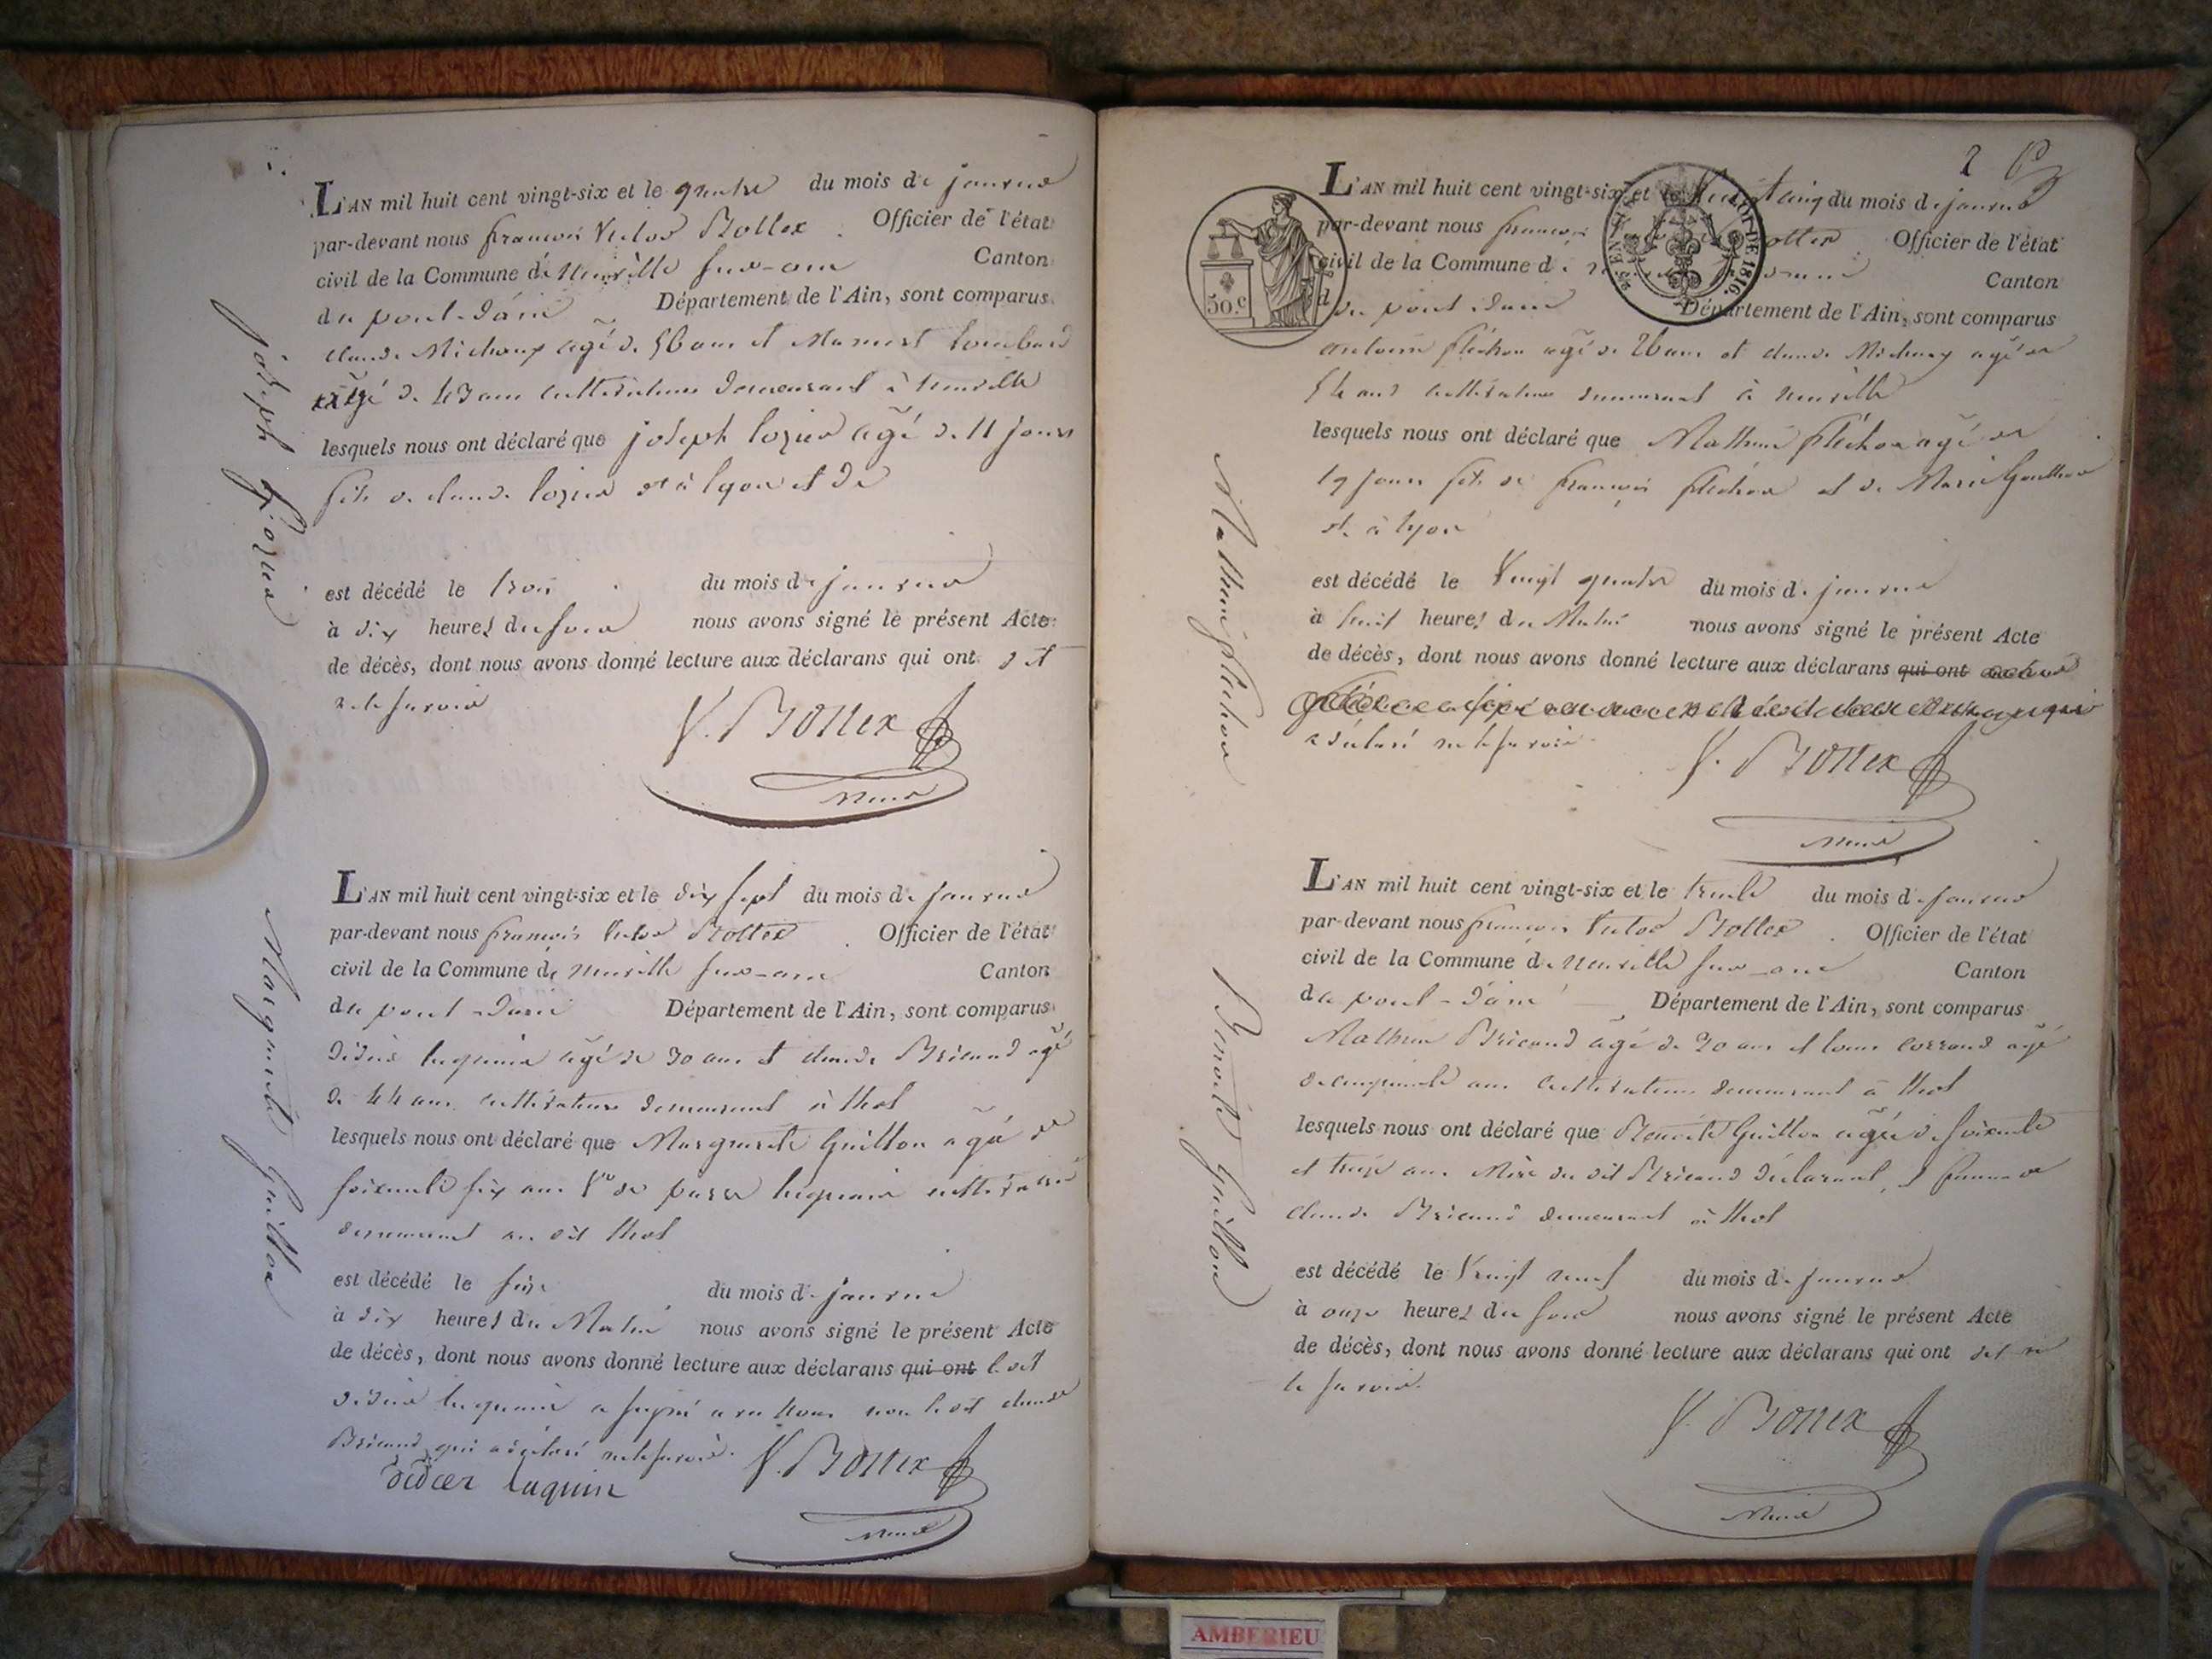 L'AN mil huit cent vingt-six et le quatre du mois de janvier
par-devant nous françois Victor Bottex Officier de l'état
civil de la Commune de neuville sur-ain Canton
du pont-d'ain Département de l'Ain, sont comparus
claude Michoux agé de 56 ans et lombard
agé de 43 ans cultivateurs demeurant à neuville
lesquels nous ont déclaré que joseph lozier agé de 11 jours
fils de claude lozier de à lyon et de
est décédé le trois du mois de janvier
à dix heures du soir nous avons signé le présent Acte
de décès, dont nous avons donné lecture aux déclarans qui ont dit
ne le savoir
V. Bottex
Maire
joseph Lozier
L'AN mil huit cent vingt-six et le dix sept du mois de janvier
par-devant nous françois Victor Bottex Officier de l'état
civil de la Commune de neuville sur-ain Canton
du pont-d'ain Département de l'Ain, sont comparus
didier luquin agé de 30 ans et claude Bricaud agé
de 44 ans cultivateurs demeurant à thol
lesquels nous ont déclaré que Marguerite Guillon agée de
soixante six ans Ve de luquin cultivateur
demeurant au dit thol
est décédé le seize du mois de janvier
à dix heures du Matin nous avons signé le présent Acte
de décès, dont nous avons donné lecture aux déclarans qui ont le dit
didier luquin a signé avec nous non le dit claude
Bricaud qui a déclaré ne le savoir.
didier luquin V. Bottex
Maire
Marguerite Guillon
2
L'AN mil huit cent vingt-six et le vingt cinq du mois de janvier
par-devant nous françois Bottex Officier de l'état
civil de la Commune de Canton
du pont d'ain Département de l'Ain, sont comparus
antoine fléchon agé de 26 ans et claude Michoux agé de
54 ans cultivateurs demeurant à neuville
lesquels nous ont déclaré que Mathieu fléchon agé de
19 jours fils de françois fléchon et de Marie
de à lyon
est décédé le Vingt quatre du mois de janvier
à huit heures du Matin nous avons signé le présent Acte
de décès, dont nous avons donné lecture aux déclarans qui ont
a déclaré ne le savoir
V. Bottex
Maire
Mathieu fléchon
50.c
LOI DE 1816.
L'AN mil huit cent vingt-six et le trente du mois de janvier
par-devant nous françois Victor Bottex Officier de l'état
civil de la Commune de neuville sur-ain Canton
du pont-d'ain Département de l'Ain, sont comparus
Mathieu Bricaud agé de 30 ans et louis corrand agé
de cinquante ans cultivateurs demeurant à thol
lesquels nous ont déclaré que Benoite Guillon agée de soixante
et treize ans Mère du dit Bricaud déclarant, et femme de
claude Bricaud demeurant à thol
est décédé le Vingt neuf du mois de janvier
à onze heures du soir nous avons signé le présent Acte
de décès, dont nous avons donné lecture aux déclarans qui ont dit ne
le savoir.
V. Bottex
Maire
Benoite Guillon
AMBERIEU